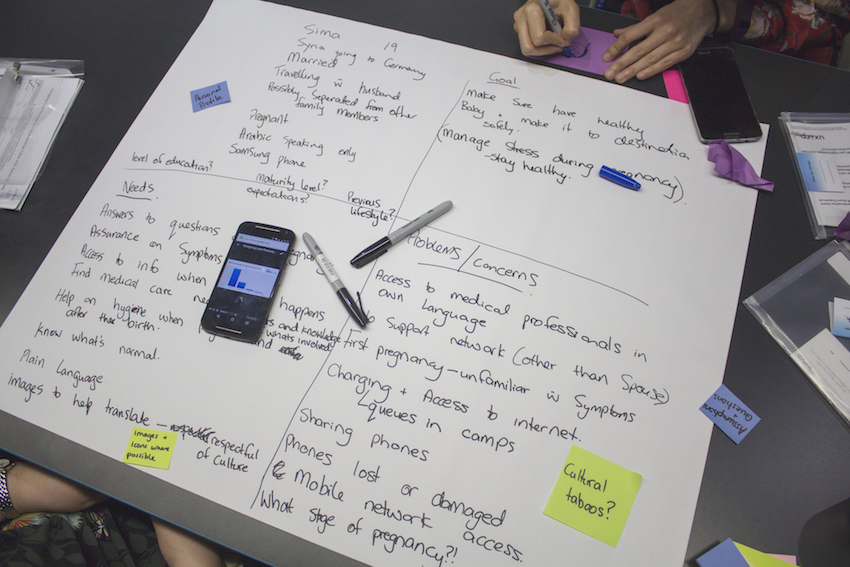 Sima
19
Syria going to Germany
Married
Travelling w husband
Possibly separated from other
family members
Pregnant
Arabic speaking only
Samsung phone
level of education?
Maturity level?
expectations?
Previous
lifestyle?
Personal
Profile
Goal
make sure have healthy
Baby + make it to destination
safely.
(Manage stress during pregnancy)
-stay healthy.
Needs
Answers to questions
Assurance on Symptoms
Access to info when
Find medical care
Help on hygiene when
after the birth.
happens
and knowledge
whats involved
and
Know what's normal.
Plain Language
images to help translate – respectful
of Culture
Images +
icons where
possible
Problems/Concerns
Access to medical professionals in
own Language
Support network (other than Spouse)
First pregnancy – unfamiliar w Symptoms
Charging + Access to internet.
queues in camps
Sharing phones
Phones lost or damaged
Mobile network access.
What stage of pregnancy?!
Cultural
taboos?
Assumptions
+
Questions